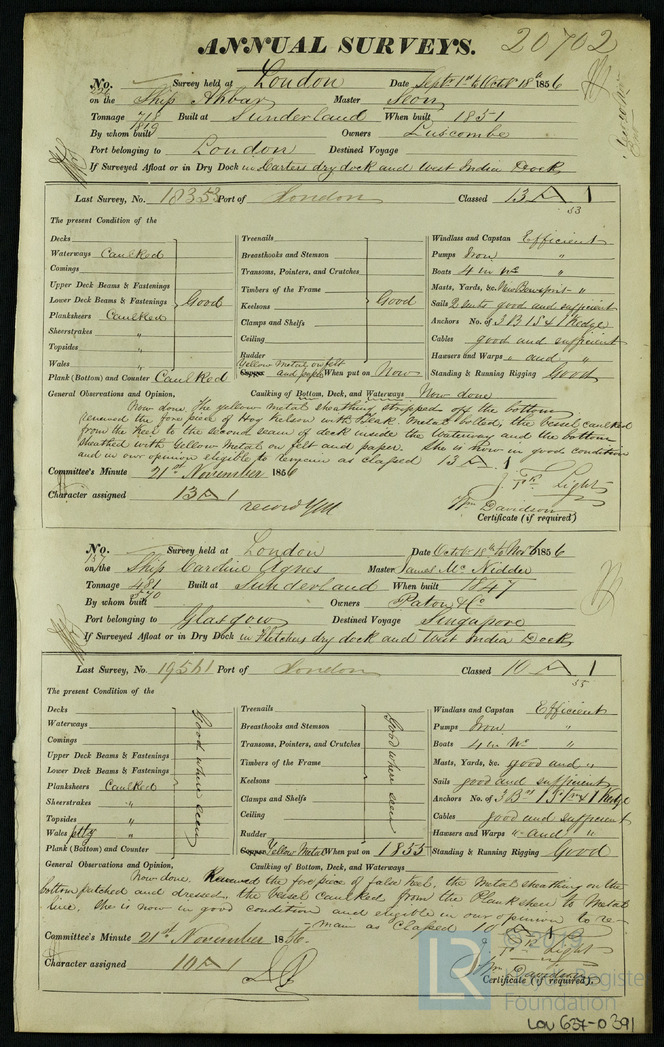 ANNUAL SURVEYS. 20702
No. 256 Survey held at London Date Septr 1st to Octob 18th 1856
on the Ship Akbar Master Seon
Tonnage 718 Built at Sunderland When built 1851
819
By whom built Owners Luscombe
Port belonging to London Destined Voyage
If Surveyed Afloat or in Dry Dock in Carters dry dock and West India Dock
Last Survey, No. 18353 Port of London Classed 13 A 1
53
The present Condition of the
Decks
Waterways Caulked
Comings
Upper Deck Beams & Fastenings
Lower Deck Beams & Fastenings Good
Planksheers Caulked
Sheerstrakes "
Topsides "
Wales "
Plank (Bottom) and Counter Caulked
Treenails
Breasthooks and Stemson
Transoms, Pointers, and Crutches
Timbers of the Frame
Keelsons Good
Clamps and Shelfs
Ceiling
Rudder
Yellow Metal on felt
Copper and paper When put on Now
Windlass and Capstan Efficient
Pumps Iron "
Boats 4 in No "
Masts, Yards, &c. New Bowsprit "
Sails 2 suits good and sufficient
Anchors No. of 3 B 1 S & 1 Kedge
Cables good and sufficient
Hawsers and Warps " and "
Standing & Running Rigging Good
General Observations and Opinion. Caulking of Bottom, Deck, and Waterways Now done
Now done The yellow metal sheathing stripped off the bottom
renewed the fore piece of Hog Kelson with Teak. Metal bolted, the vessel caulked
from the keel to the second seam of deck inside the Waterway and the bottom
sheathed with Yellow Metal on felt and paper. She is now in good condition
and in our opinion eligible to remain as classed 13 A 1
Committee's Minute 21st November 1856
Light
Character assigned 13 A 1
record YM
Wm Davidson
Certificate (if required)
No. 137 Survey held at London Date Octob 18th to Nov 6 1856
on the Ship Caroline Agnes Master James McNidder
Tonnage 481 Built at Sunderland When built 1847
570
By whom built Owners Paton & Co
Port belonging to Glasgow Destined Voyage Singapore
If Surveyed Afloat or in Dry Dock in Fletchers dry dock and West India Dock
Last Survey, No. 19561 Port of London Classed 10 A 1
55
The present Condition of the
Decks
Waterways
Comings
Upper Deck Beams & Fastenings
Lower Deck Beams & Fastenings
Planksheers Caulked
Sheerstrakes "
Topsides "
Wales ptly "
Plank (Bottom) and Counter
Good where seen
Treenails
Breasthooks and Stemson
Transoms, Pointers, and Crutches
Timbers of the Frame
Keelsons
Clamps and Shelfs
Ceiling
Rudder
Copper Yellow Metal When put on 1855
Good where seen
Windlass and Capstan Efficient
Pumps Iron "
Boats 4 in No "
Masts, Yards, &c. good and "
Sails good and sufficient
Anchors No. of 3 Br 1 St & 1 Kedge
Cables good and sufficient
Hawsers and Warps " and "
Standing & Running Rigging Good
General Observations and Opinion, Caulking of Bottom, Deck, and Waterways
Now done. Renewed the fore piece of false keel, the metal sheathing on the
bottom patched and dressed, the vessel caulked from the Plank sheer to Metal
line. She is now in good condition and eligible in our opinion to re-
main as classed 10 A 1
Committee's Minute 21st November 1856.
Light
Character assigned 10 A 1
Wm Davidson
Certificate (if required).
© 2019
Lloyd's Register
Foundation
LR
LON 637-0391